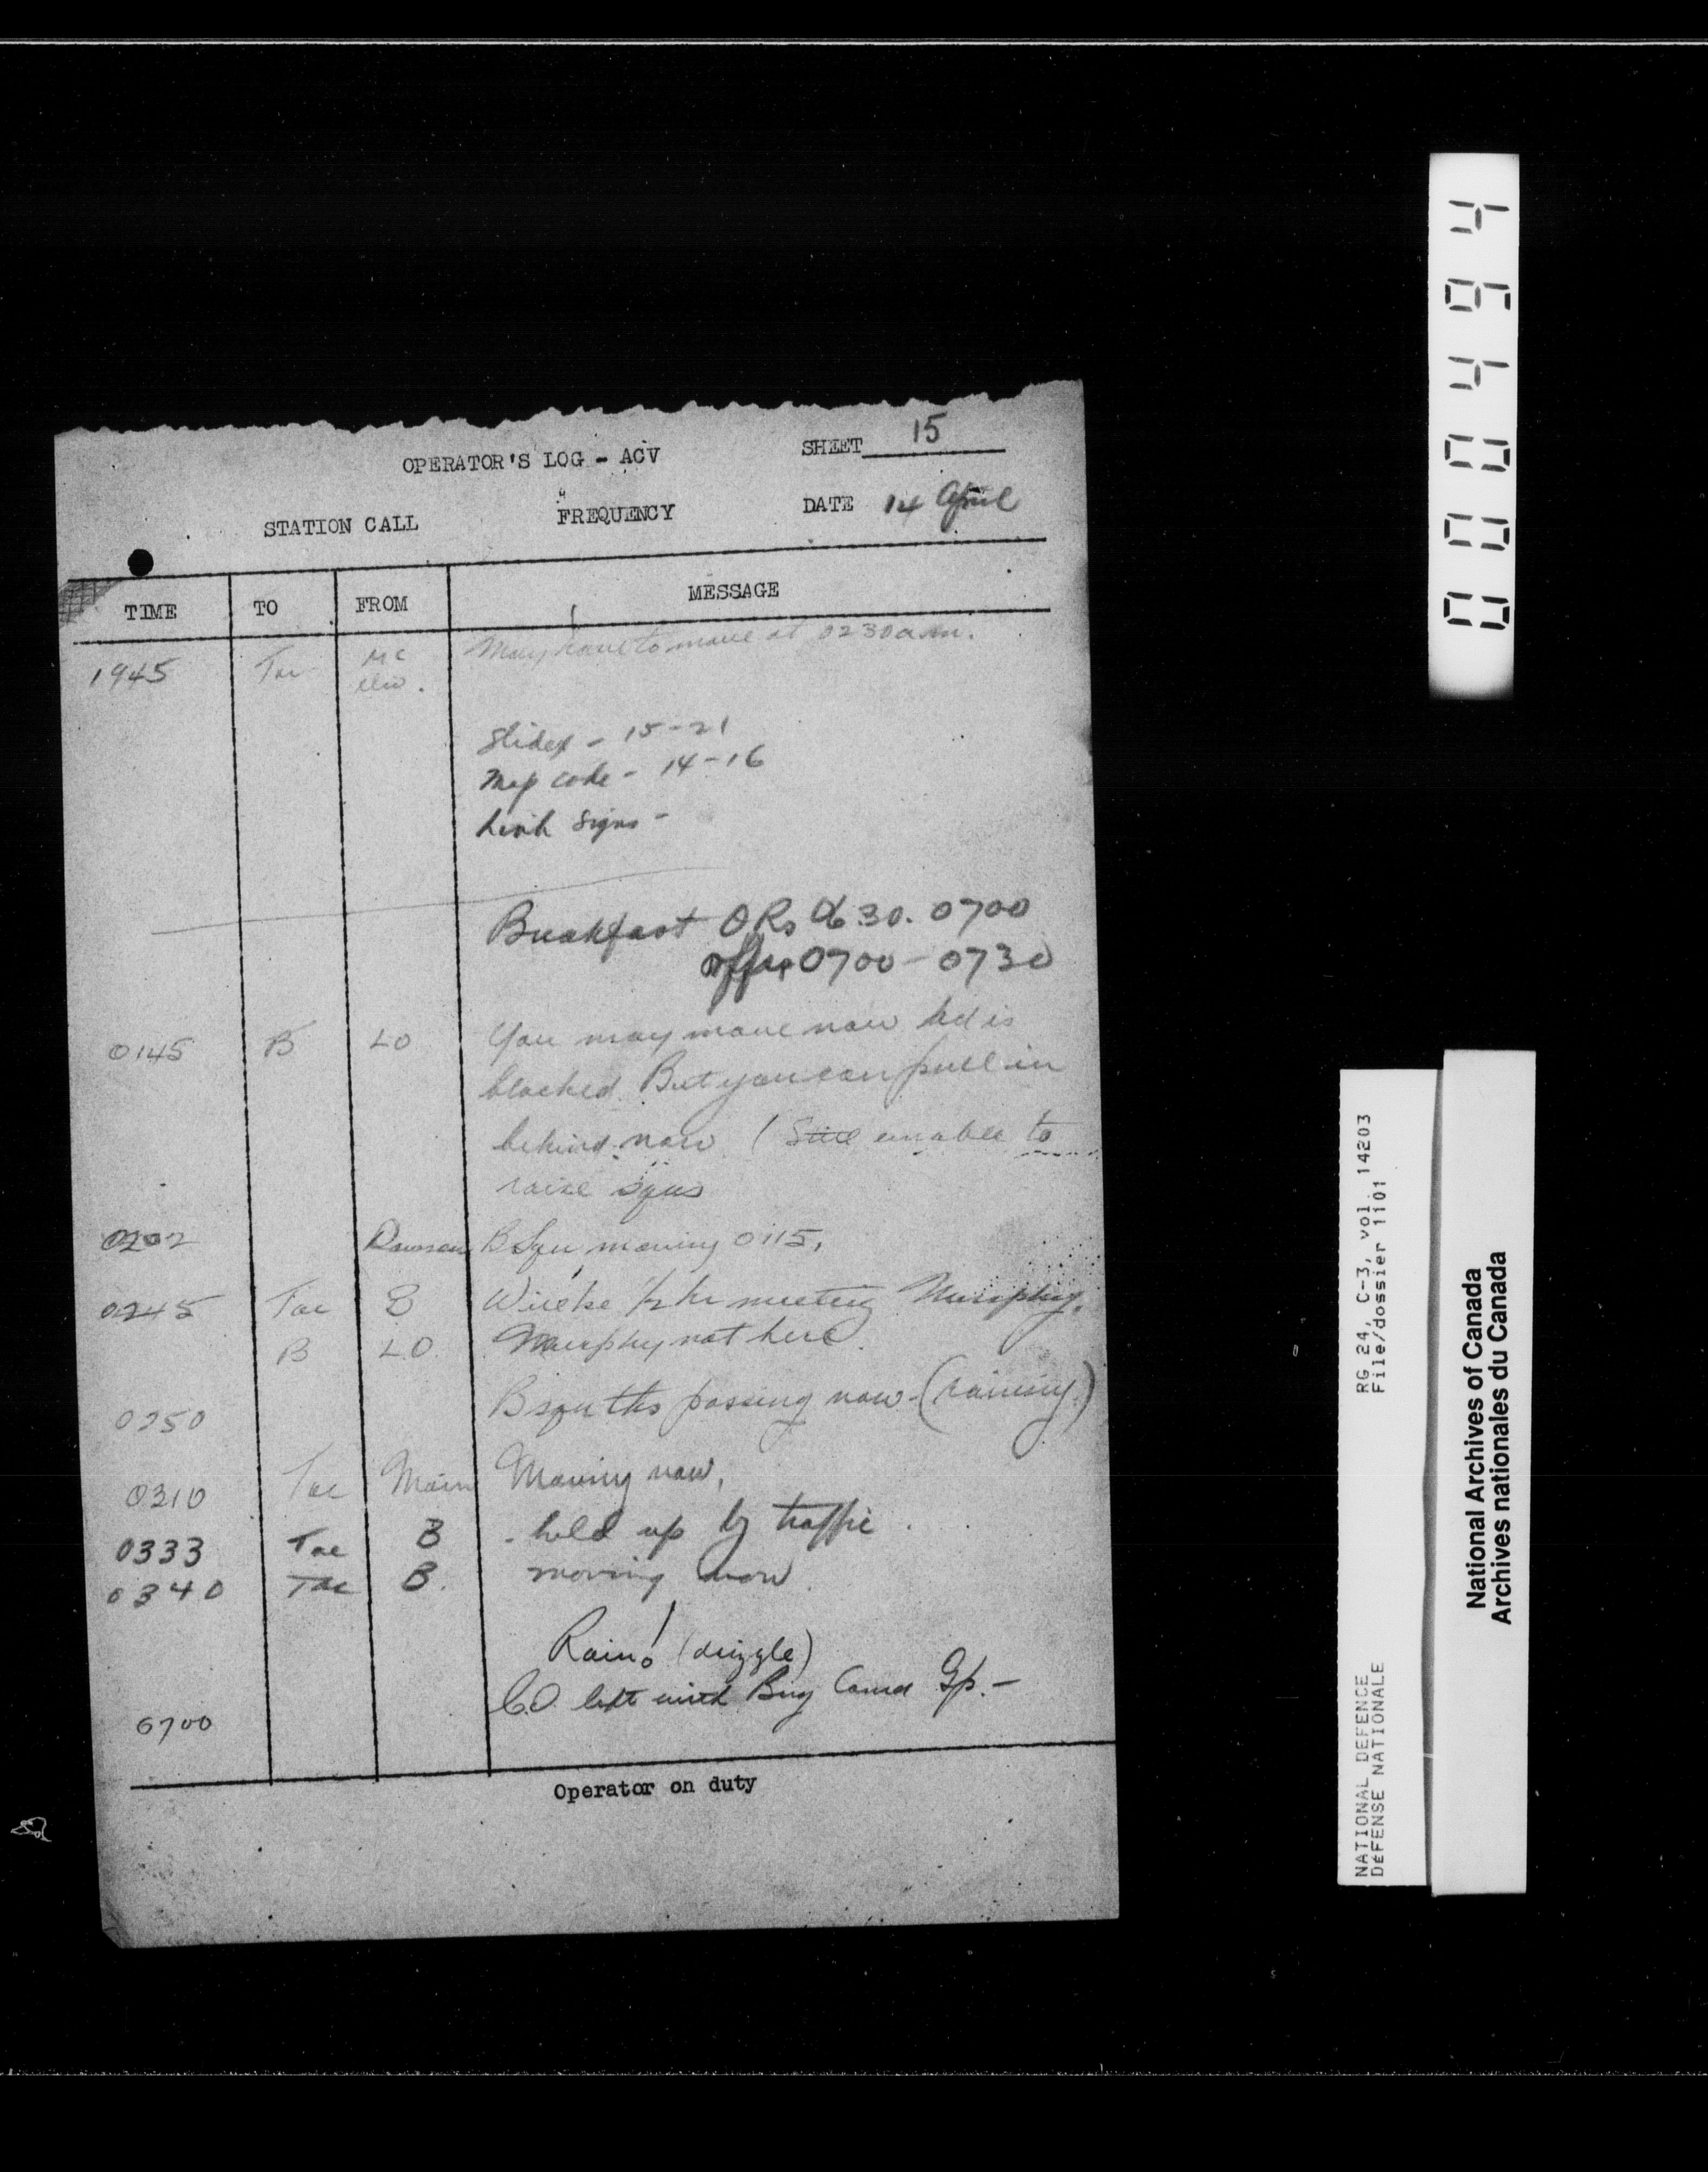 OPERATOR'S LOG - ACV
SHEET 15
STATION CALL
FREQUENCY
DATE 14 April
TIME TO FROM MESSAGE
1945 Tac Mc May have to move at 0230 a.m.
Slidex - 15-21
Map code - 14-16
Link signs -
Breakfast ORs 0630. 0700
offrs 0700 - 0730
0145 B LO You may move now Rd is
blocked. But you can pull in
behind now (Still unable to
raise Sqns
0202 B Sqn moving 0115.
0245 Tac B Will be 1/2 hr meeting Murphy.
B LO. Murphy not here.
0250 B sqn tks passing now - (raining.)
0310 Tac Main Moving now.
0333 Tac B - held up by traffic.
0340 Tac B. moving now.
Rain! (drizzle)
0700 C.O. left with Brig Comd Gp. -
Operator on duty
0004094
RG 24, C-3, vol. 14203
File/dossier 1101
NATIONAL DEFENCE
DÉFENSE NATIONALE
National Archives of Canada
Archives nationales du Canada